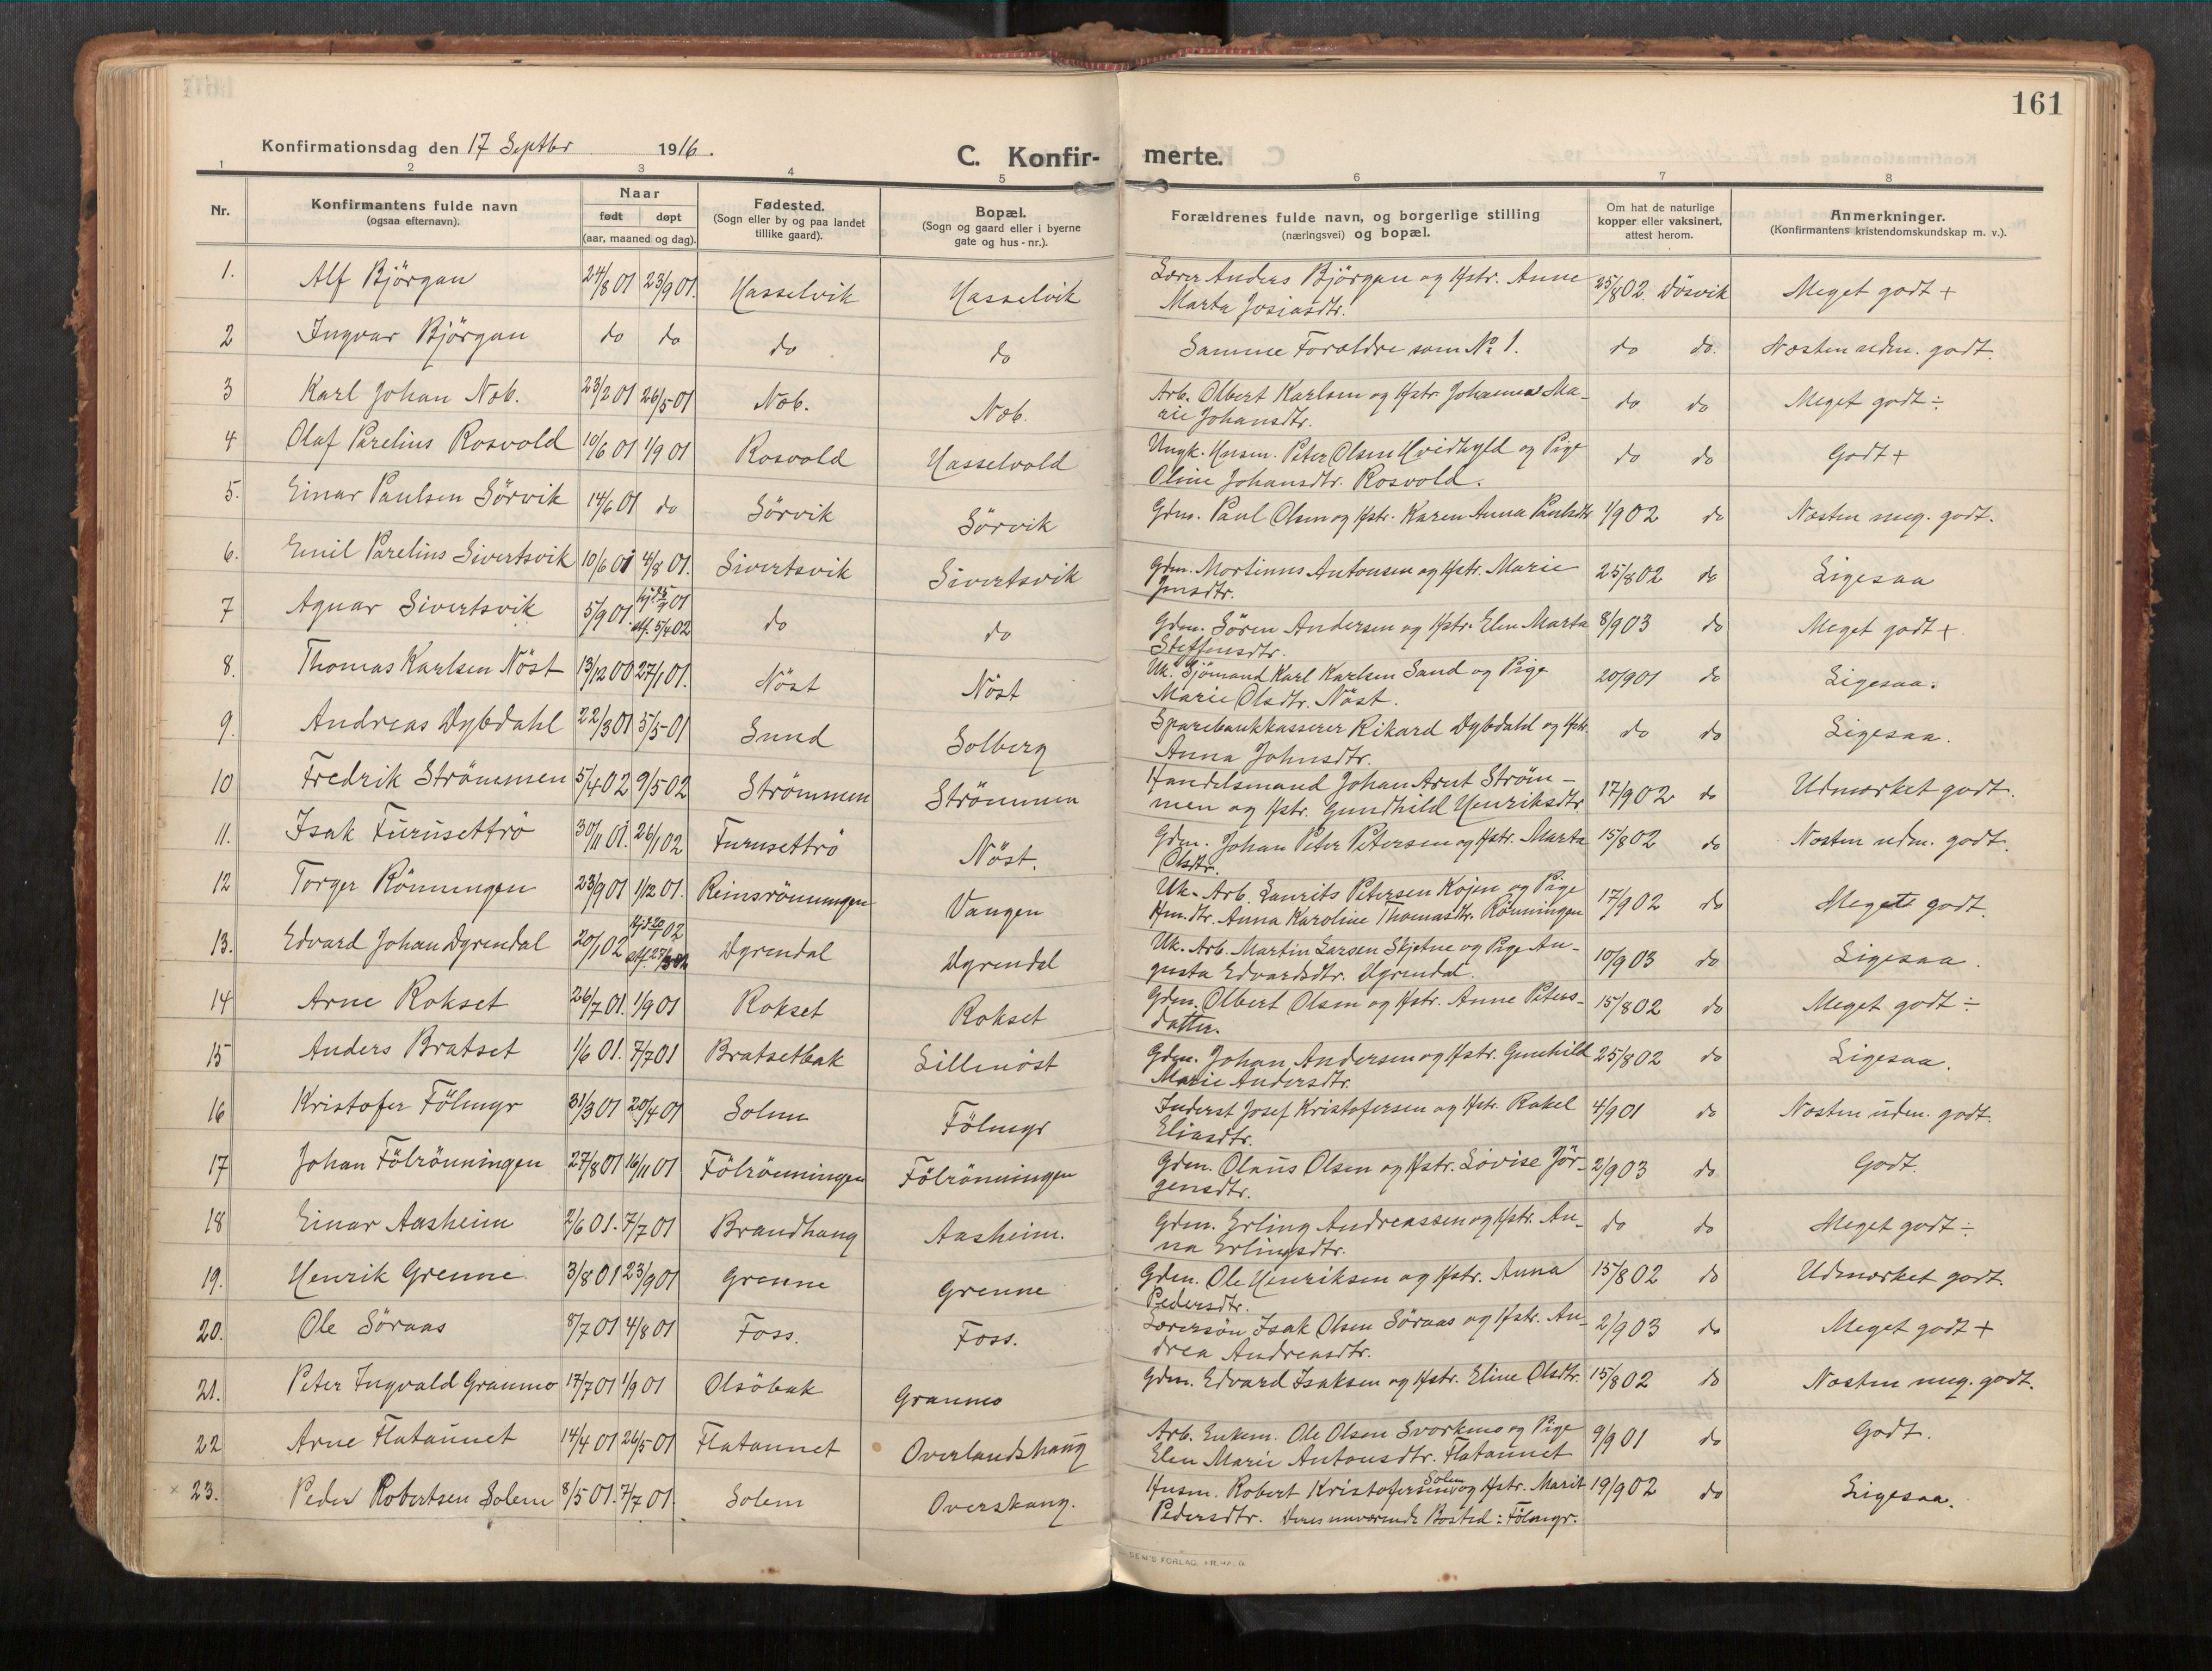 161
Konfirmationsdag den 17 Septbr 1916.
C. Konfir- merte.
1 2 3 4 5 6 7 8
Nr.
Konfirmantens fulde navn
(ogsaa efternavn).
Naar
født døpt
(aar, maaned og dag).
Fødested.
(Sogn eller by og paa landet
tillike gaard).
Bopæl.
(Sogn og gaard eller i byerne
gate og hus-nr.).
Forældrenes fulde navn, og borgerlige stilling
(næringsvei) og bopæl.
Om hat de naturlige
kopper eller vaksinert,
attest herom.
Anmerkninger.
(Konfirmantens kristendomskundskap m. v.).
1. Alf Björgan 24/8 01 23/9 01. Hasselvik Hasselvik Lærer Anders Björgan og Hstr. Anne
Marta Josiasdtr. 25/8 02. Dösvik Meget godt +
2 Ingvar Björgan do do do do Samme Forældre som No 1. do do. Næsten udm. godt.
3 Karl Johan Næb. 23/2 01 26/5 01 Næb. Næb. Arb. Olbert Karlsen og Hstr. Johanna Ma-
rie Johansdtr. do do Meget godt ÷
4 Olaf Parelius Rosvold 10/6 01 1/9 01 Rosvold Hasselvold Ungk. Husm. Peter Olsen Hvidhyld og Pige
Oline Johansdtr. Rosvold. do do Godt +
5. Einar Paulsen Sörvik 14/6 01 do Sörvik Sörvik Gdm. Paul Olsen og Hstr. Karen Anna Paulsdtr 1/9 02 do Næsten meg. godt.
6. Emil Parelius Sivertsvik 10/6 01 4/8 01. Sivertsvik Sivertsvik Gdm. Mortinus Antonsen og Hstr. Marie
Jensdtr. 25/8 02 do Ligesaa
7 Agnar Sivertsvik 5/9 01. hj. 01
stf. 5/4 02 do do Gdm. Sören Andersen og Hstr. Elen Marta
Steffensdtr. 8/9 03 do Meget godt +
8. Thomas Karlsen Nöst 13/12 00 27/1 01. Nöst Nöst Uk. Sjömand Karl Karlsen Sand og Pige
Marie Olsdtr. Nöst. 20/9 01 do Ligesaa.
9. Andreas Dybdahl 22/3 01 5/5 01 Sund Solberg Sparebankkasserer Rikard Dybdahl og Hstr.
Anna Johnsdtr. do do Ligesaa.
10 Fredrik Strömmen 5/4 02 9/5 02 Strömmen Strömmen Handelsmand Johan Arnt Ström-
men og Hstr. Gundhild Henriksdtr. 17/9 02 do Udmærket godt.
11. Isak Furusettrö 30/11 01. 26/1 02 Furusettrö Nöst. Gdm. Johan Peter Petersen og Hstr. Marta
Olsdtr. 15/8 02 do Næsten udm. godt.
12 Torger Rönningen 23/9 01 1/12 01. Reinsrönningen Vangen Uk. Arb. Laurits Petersen Kojen og Pige
Hm.dtr. Anna Karoline Thomasdtr. Rönningen 17/9 02 do Meget godt.
13. Edvard Johan Dyrendal 20/1 02 hj. 02
stf. 27/3 02 Dyrendal Dyrendal Uk. Arb. Martin Larsen Skjetne og Pige Au-
gusta Edvardsdtr. Dyrendal. 10/9 03 do Ligesaa.
14 Arne Rokset 26/7 01. 1/9 01 Rokset Rokset Gdm. Olbert Olsen og Hstr. Anne Peters-
datter. 15/8 02 do Meget godt ÷
15 Anders Bratset 1/6 01. 7/7 01 Bratsetbak Lillenöst Gdm. Johan Andersen og Hstr. Gunhild
Marie Andersdtr. 25/8 02 do Ligesaa.
16 Kristofer Fölmyr 31/3 01 20/4 01 Solem Fölmyr Inderst Josef Kristofersen og Hstr. Rakel
Eliasdtr. 4/9 01 do Næsten udm. godt.
17 Johan Fölrönningen 27/8 01 16/11 01 Fölrönningen Fölrönningen Gdm. Olaus Olsen og Hstr. Lovise Jör-
gensdtr. 2/9 03 do Godt.
18 Einar Aasheim 2/6 01. 7/7 01 Brandhaug Aasheim. Gdm. Erling Andreassen og Hstr. An-
na Erlingsdtr. do do Meget godt ÷
19. Henrik Grenne 3/8 01 23/9 01 Grenne Grenne Gdm. Ole Henriksen og Hstr. Anna
Pedersdtr. 15/8 02 do Udmærket godt.
20. Ole Söraas 8/7 01 4/8 01 Foss. Foss. Lærersön Isak Olsen Söraas og Hstr. An-
drea Andreasdtr. 2/9 03 do Meget godt +
21. Peter Ingvald Granmo 17/7 01 1/9 01 Olsöbak Granmo Gdm. Edvard Isaksen og Hstr. Eline Olsdtr. 15/8 02 do Næsten meg. godt.
22 Arne Flataunet 14/4 01 26/5 01 Flataunet Overlandshaug Arb. Enkem. Ole Olsen Svorkmo og Pige
Elen Marie Antonsdtr. Flataunet 9/9 01 do Godt.
× 23. Peder Robertsen Solem 8/5 01. 7/7 01. Solem Overskaug. Husm. Robert Kristofersen Solem og Hstr. Marit
Pedersdtr. Deres nuværende Bosted: Fölmyr. 19/9 02 do Ligesaa.